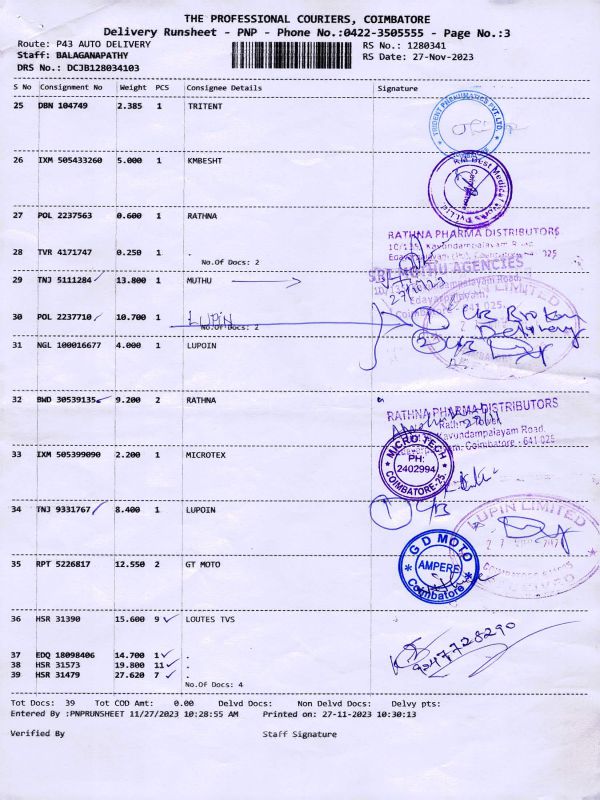 THE PROFESSIONAL COURIERS, COIMBATORE
Delivery Runsheet - PNP - Phone No.:0422-3505555 - Page No.:3
Route: P43 AUTO DELIVERY RS No.: 1280341
Staff: BALAGANAPATHY RS Date: 27-Nov-2023
DRS No.: DCJB128034103
S No Consignment No Weight PCS Consignee Details Signature
25 DBN 104749 2.385 1 TRITENT
26 IXM 505433260 5.000 1 KMBESHT
KM Best Medical
27 POL 2237563 0.600 1 RATHNA
RATHNA PHARMA DISTRIBUTORS
10/135, Kavundampalayam Road,
28 TVR 4171747 0.250 1 .
No.Of Docs: 2
025
29 TNJ 5111284 13.800 1 MUTHU
SRI MUTHU AGENCIES
27/11/23
30 POL 2237710 10.700 1 LUPIN
No.Of Docs: 2
① C/B Broken
Delivery
② C/B
31 NGL 100016677 4.000 1 LUPOIN
32 BWD 30539135 9.200 2 RATHNA
RATHNA PHARMA DISTRIBUTORS
Kavundampalayam Road,
Coimbatore - 641 025
33 IXM 505399090 2.200 1 MICROTEX
MICRO TECH
PH:
2402994
COIMBATORE-25.
34 TNJ 9331767 8.400 1 LUPOIN
① C/B
LUPIN LIMITED
35 RPT 5226817 12.550 2 GT MOTO
G D MOTO
AMPERE
Coimbatore
36 HSR 31390 15.600 9 LOUTES TVS
9347728290
37 EDQ 18098406 14.700 1 .
38 HSR 31573 19.800 11 .
39 HSR 31479 27.620 7 .
No.Of Docs: 4
Tot Docs: 39 Tot COD Amt: 0.00 Delvd Docs: Non Delvd Docs: Delvy pts:
Entered By :PNPRUNSHEET 11/27/2023 10:28:55 AM Printed on: 27-11-2023 10:30:13
Verified By Staff Signature